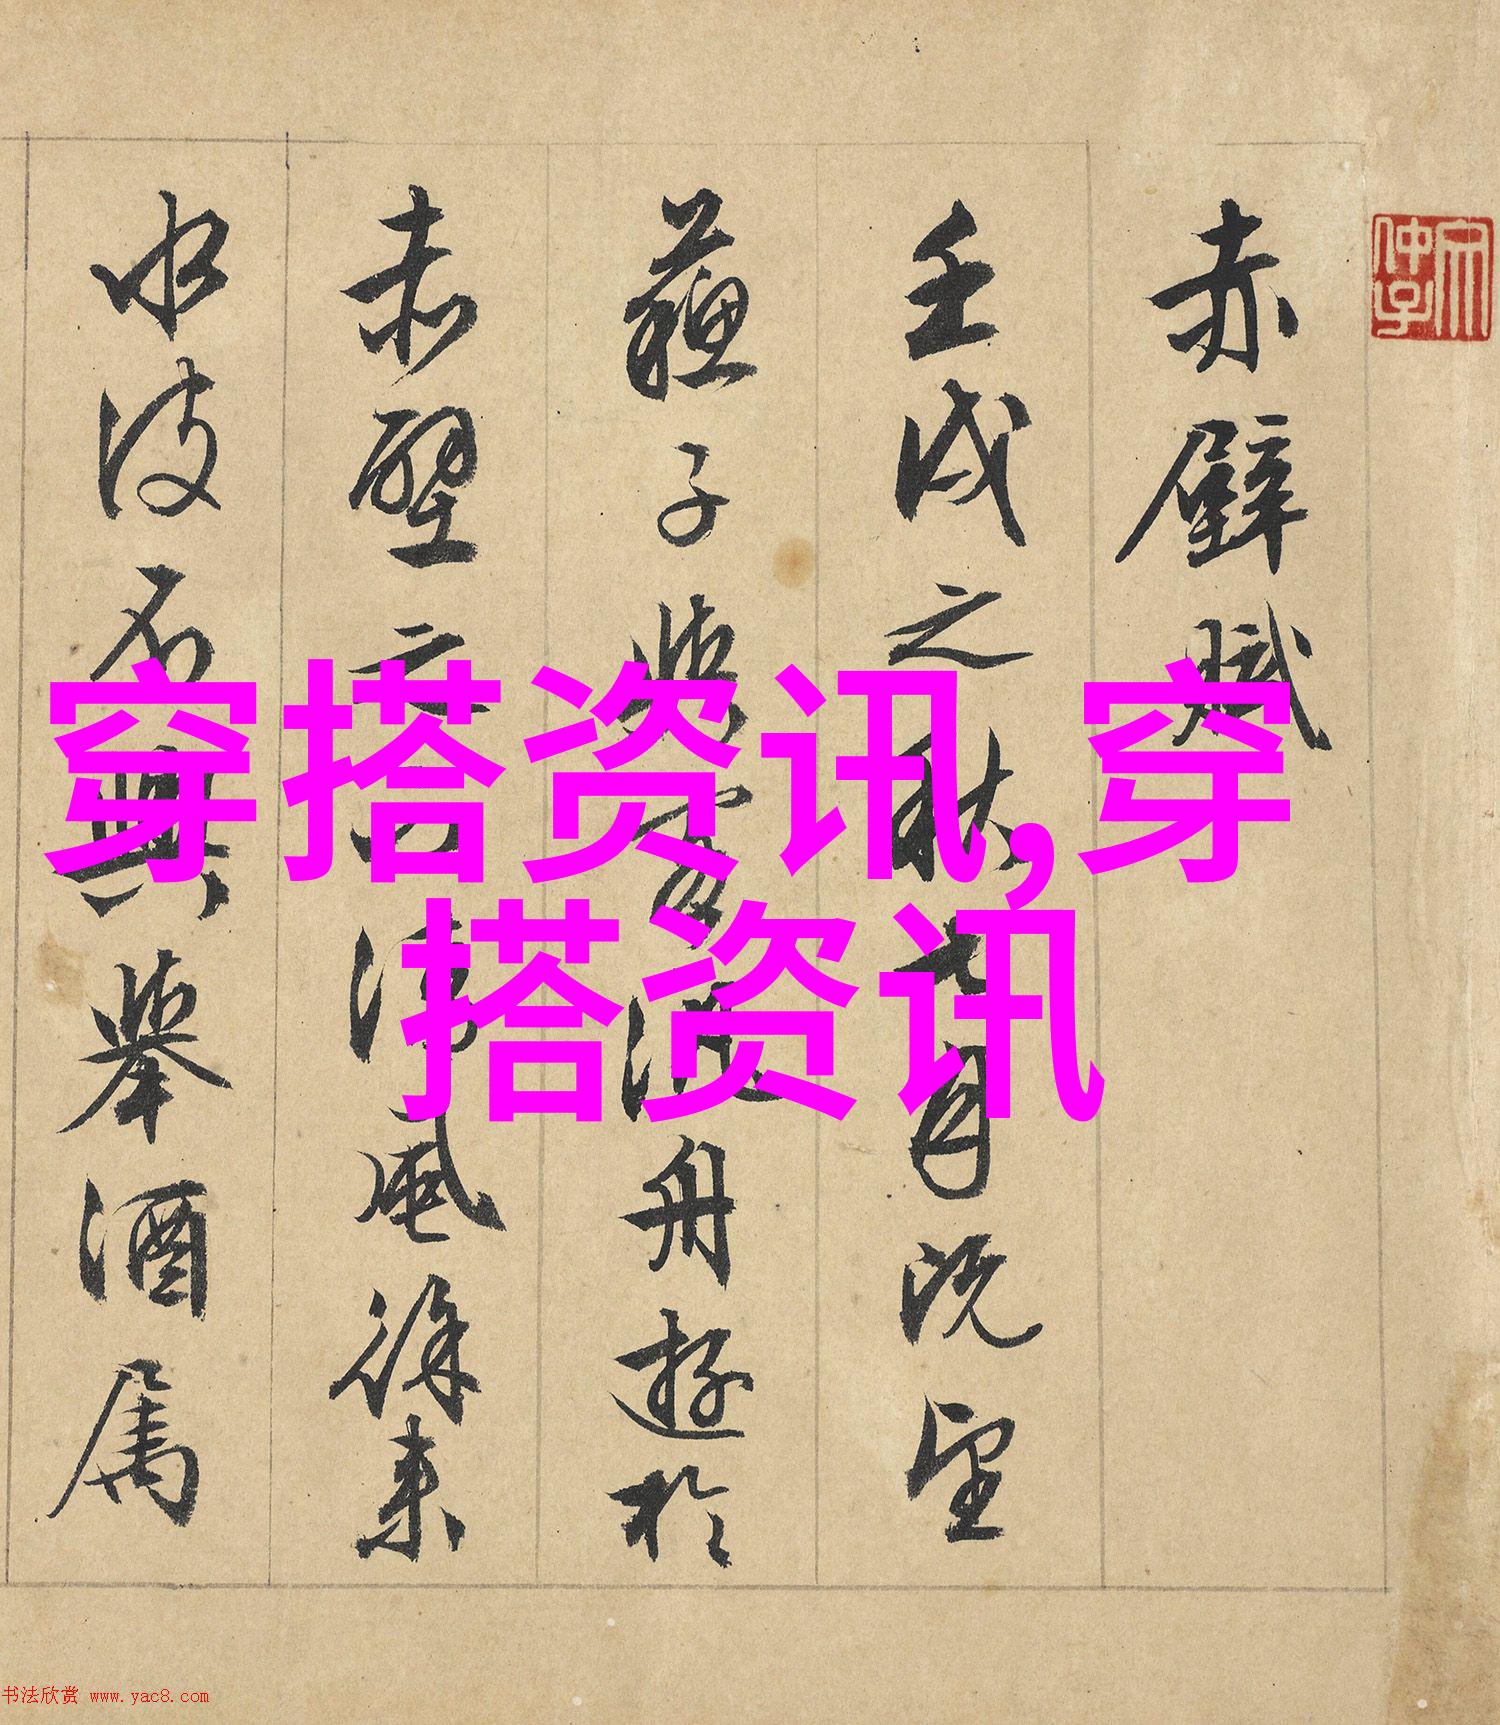 赤壁賦
壬戌之秋七月既望
蘇子與客泛舟遊於
赤壁之下清風徐來
水波不興舉酒屬
穿搭资讯,穿
搭资讯
书法欣赏 www.yac8.com